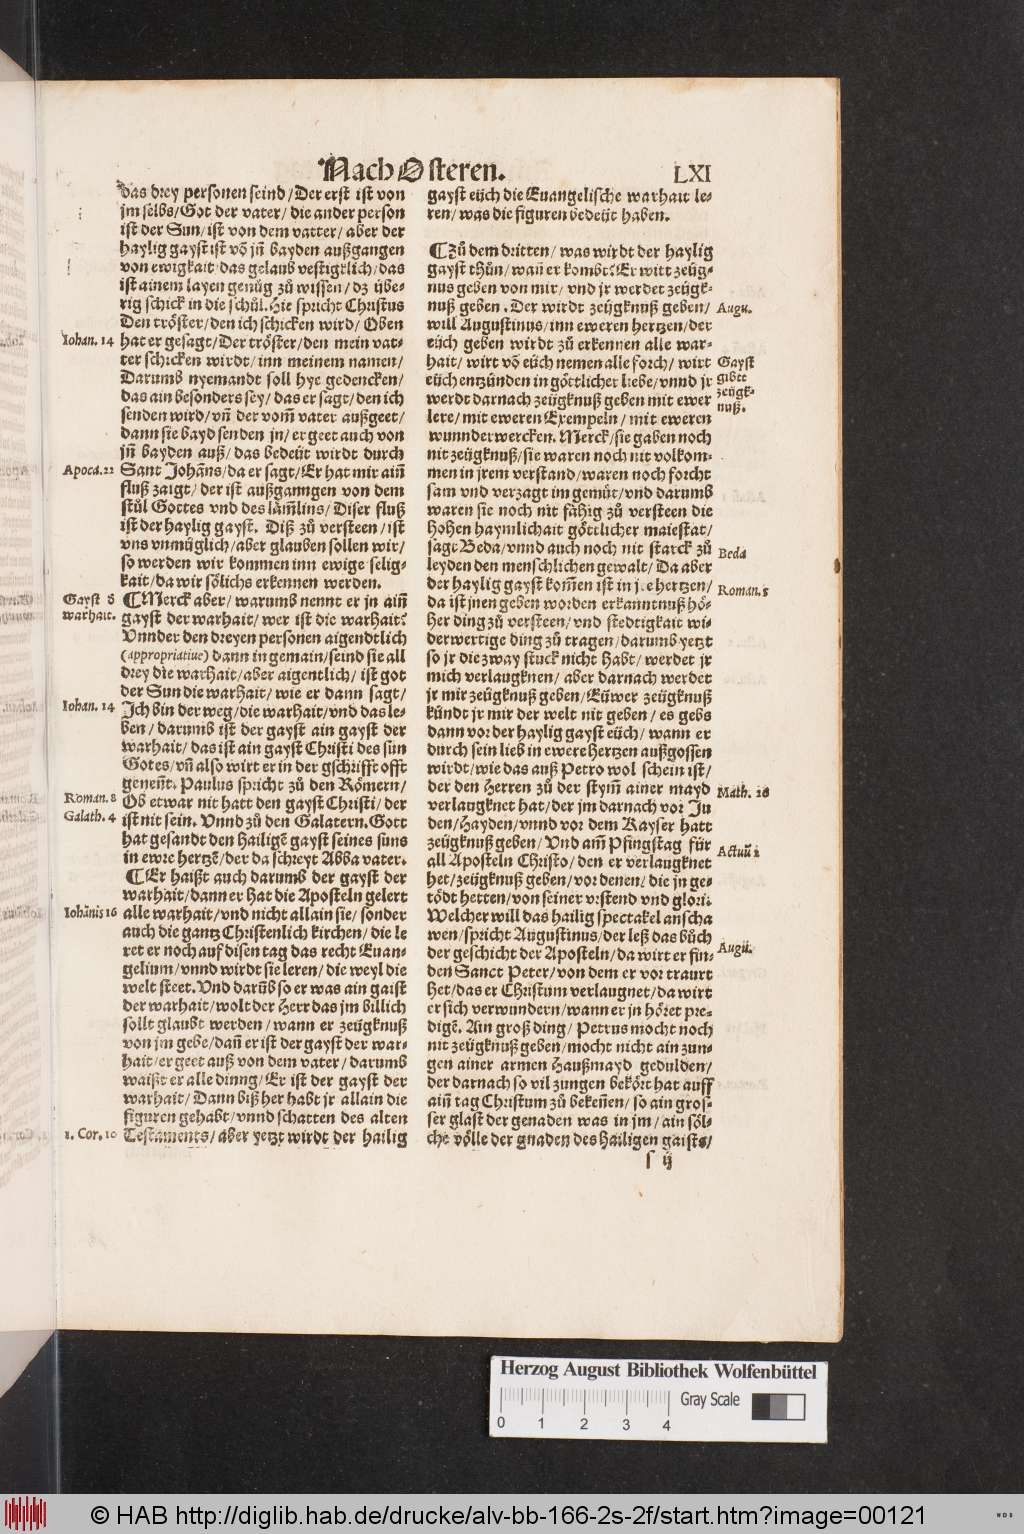 Nach Osteren.
LXI
das drey personen seind/Der erst ist von
jm selbs/Got der vater/die ander person
ist der Sun/ist von dem vatter/aber der
haylig gayst ist võ jñ bayden außgangen
von ewigkait/das gelaub vestigklich/das
ist ainem layen genůg zů wissen/dz übe-
rig schick in die schůl. Hie spricht Christus
Den tröster/den ich schicken wird/Oben
Iohan. 14
hat er gesagt/Der tröster/den mein vat-
ter schicken wirdt/inn meinem namen/
Darumb nyemandt soll hye gedencken/
das ain besonders sey/das er sagt/den ich
senden wird/vñ der vom̃ vater außgeet/
dann sie bayd senden jn/er geet auch von
jñ bayden auß/das bedeüt wirdt durch
Apoca. 22
Sant Johãns/da er sagt/Er hat mir aiñ
fluß zaigt/der ist außganngen von dem
stůl Gottes vnd des lãm̃lins/Diser fluß
ist der haylig gayst. Diß zů versteen/ist
vns vnmüglich/aber glauben sollen wir/
so werden wir kommen inn ewige selig-
kait/da wir sölichs erkennen werden.
Gayst 8
warhait.
¶Merck aber/warumb nennt er jn aiñ
gayst der warhait/wer ist die warhait?
Vnnder den dreyen personen aigendtlich
(appropriatiue) dann in gemain/seind sie all
drey die warhait/aber aigentlich/ist got
der Sun die warhait/wie er dann sagt/
Iohan. 14
Ich bin der weg/die warhait/vnd das le-
ben/darumb ist der gayst ain gayst der
warhait/das ist ain gayst Christi des sun
Gotes/vñ also wirt er in der gschrifft offt
geneñt. Paulus spricht zů den Römern/
Roman. 8
Ob etwar nit hatt den gayst Christi/der
Galath. 4
ist nit sein. Vnnd zů den Galatern. Gott
hat gesandt den Heiligẽ gayst seines suns
in ewre hertzẽ/der da schreyt Abba vater.
¶Er haißt auch darumb der gayst der
warhait/dann er hat die Aposteln gelert
Iohãnis 16
alle warhait/vnd nicht allain sie/sonder
auch die gantz Christenlich kirchen/die le
ret er noch auf disen tag das recht Euan-
gelium/vnnd wirdt sie leren/die weyl die
welt steet. Vnd darũb so er was ain gaist
der warhait/wolt der Herr das jm billich
sollt glaubt werden/wann er zeügknuß
von jm gebe/dañ er ist der gayst der war-
hait/er geet auß von dem vater/darumb
waißt er alle dinng/Er ist der gayst der
warhait/Dann biß her habt jr allain die
figuren gehabt/vnnd schatten des alten
1. Cor. 10
Testaments/aber yetzt wirdt der hailig
gayst eüch die Euangelische warhait le-
ren/was die figuren bedeüt haben.
¶Zů dem dritten/was wirdt der haylig
gayst thůn/wañ er kombt? Er wirt zeüg-
nus geben von mir/vnd jr werdet zeügk-
nuß geben. Der wirdt zeügknuß geben/
Augu.
will Augustinus/inn eweren hertzen/der
eüch geben wirdt zů erkennen alle war-
hait/wirt võ eüch nemen alle forch/wirt
eüch entzünden in göttlicher liebe/vnnd jr
Gayst
gibtt
zeügk-
nuß.
werdt darnach zeügknuß geben mit ewer
lere/mit eweren Exempeln/mit eweren
wunnderwercken. Merck/sie gaben noch
nit zeügknuß/sie waren noch nit volkom-
men in jrem verstand/waren noch forcht
sam vnd verzagt im gemüt/vnd darumb
waren sie noch nit fähig zů versteen die
hohen haymlichait göttlicher maiestat/
sagt Beda/vnnd auch noch nit starck zů
Beda
leyden den menschlichen gewalt/Da aber
der haylig gayst kom̃en ist in hertzen/
Roman. 5
da ist jnen geben worden erkanntnuß hö-
her ding zů versteen/vnd stedtigkait wi-
derwertige ding zů tragen/darumb yetzt
so jr die zway stuck nicht habt/werdet jr
mich verlaugknen/aber darnach werdet
jr mir zeügknuß geben/Eüwer zeügknuß
kündt jr mir der welt nit geben/es gebs
dann vor der haylig gayst eüch/wann er
durch sein lieb in ewere hertzen außgossen
wirdt/wie das auß Petro wol schein ist/
der den Herren zů der stym̃ ainer mayd
Math. 26
verlaugknet hat/der jm darnach vor Ju
den/Hayden/vnnd vor dem Kayser hatt
zeügknuß geben/Vnd am̃ Pfingstag für
Actuũ 2
all Aposteln Christo/den er verlaugknet
het/zeügknuß geben/vor denen/die jn ge-
tödt hetten/von seiner vrstend vnd glori.
Welcher will das hailig spectakel anscha
wen/spricht Augustinus/der leß das bůch
Augũ.
der geschicht der Aposteln/da wirt er fin-
den Sanct Peter/von dem er vor traurt
het/das er Christum verlaugnet/da wirt
er sich verwundern/wann er jn höret pre-
digẽ. Ain groß ding/Petrus mocht noch
nit zeügknuß geben/mocht nicht ain zun-
gen ainer armen Haußmayd gedulden/
der darnach so vil zungen bekört hat auff
aiñ tag Christum zů bekeñen/so ain gros-
ser glast der genaden was in jm/ain söl-
che völle der gnaden des Hailigen gaists/
s ij
Herzog August Bibliothek Wolfenbüttel
Gray Scale
0 1 2 3 4
© HAB http://diglib.hab.de/drucke/alv-bb-166-2s-2f/start.htm?image=00121